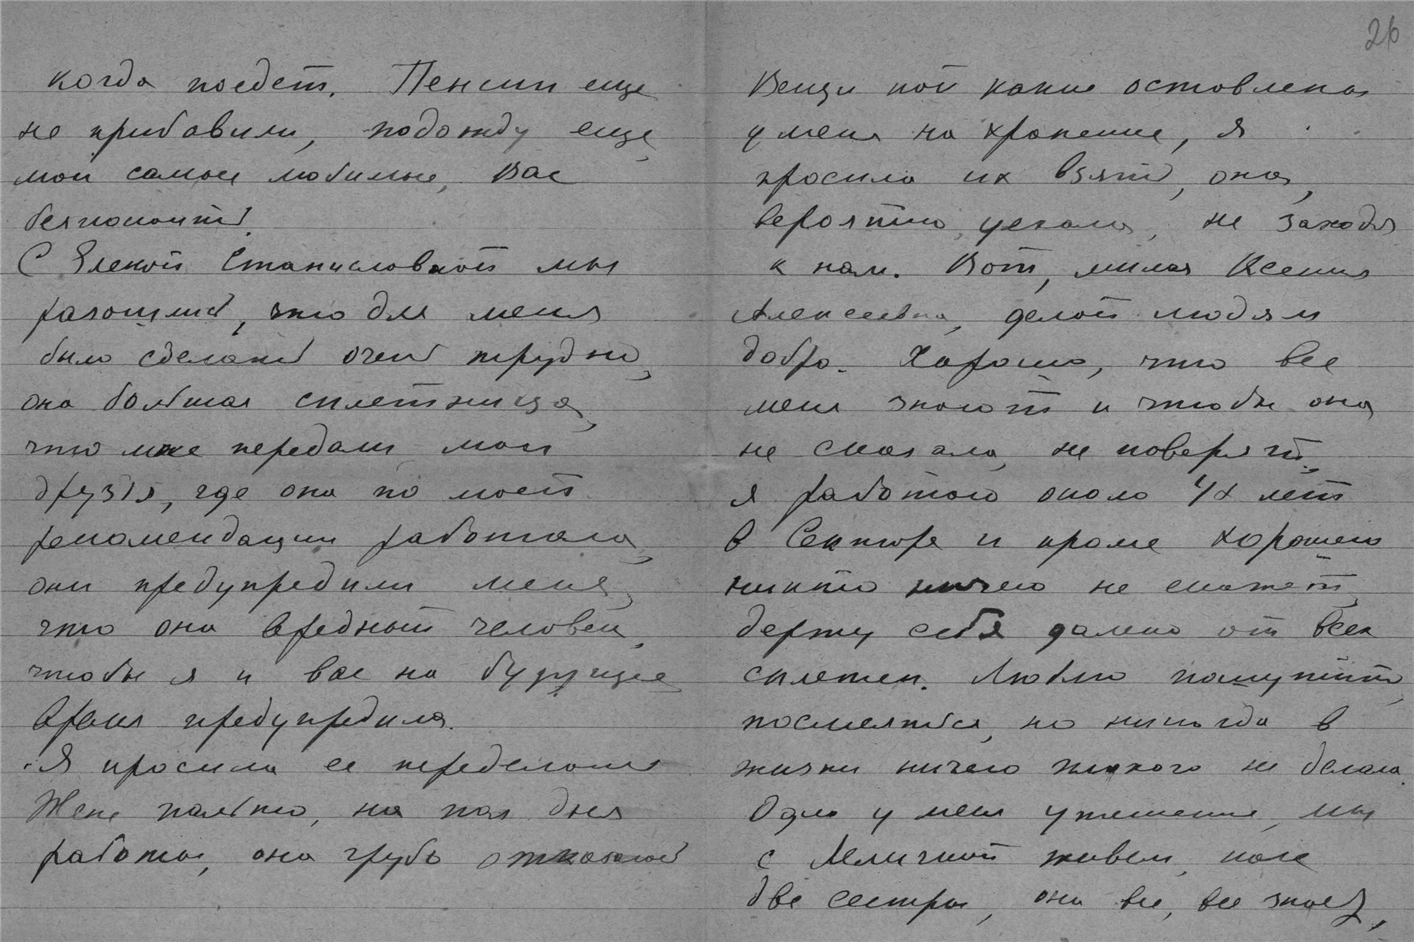 когда поедет. Пенсии еще
не прибавили, подожду еще,
мои самые любимые, Вас
беспокоить.
С Еленой Станиславовной мы
разошлись, что для меня
было сделать очень трудно,
она большая сплетница,
что мне передали мои
друзья, где она по моей
рекомендации работала,
они предупредили меня,
что она вредный человек,
чтобы я и вас на будущее
время предупредила.
Я просила ее переделать
Жене пальто, на два дня
работы, она грубо отказалась
26
Вещи кой какие оставлены
у меня на хранение, я
просила их взять, она,
вероятно, уехала, не заходя
к нам. Вот, милая Ксения
Алексеевна, делай людям
добро. Хорошо, что все
меня знают и чтобы она
не сказала, не поверят.
я работаю около 4х лет
в Секторе и кроме хорошего
никто ничего не скажет,
держу себя далеко от всех
сплетен. Люблю пошутить,
посмеяться, но никогда в
жизни ничего плохого не делала.
Одно у меня утешение, мы
с живем, как
две сестры, она все, все знает,